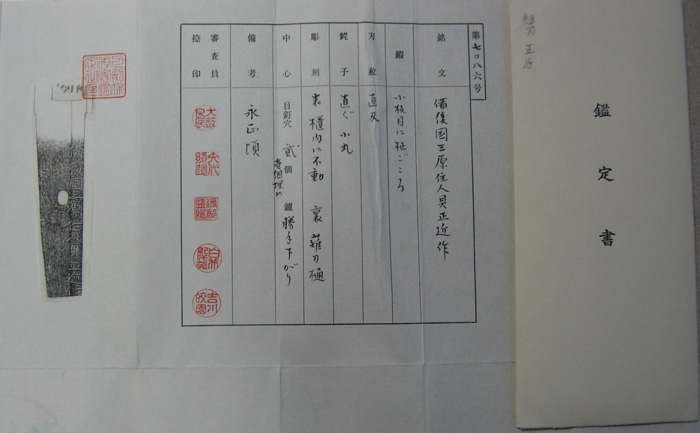 短刀 正近
鑑定書
第七〇八六号
銘文 備後国三原住人貝正近作
鍜 小板目に杢ごころ
刃紋 直刃
鋩子 直ぐ小丸
彫刻 表 櫃内に不動 裏 薙刀樋
中心 目釘穴 貳個 壱個埋め 鑢 勝手下がり
備考 永正頃
審査員
捺印